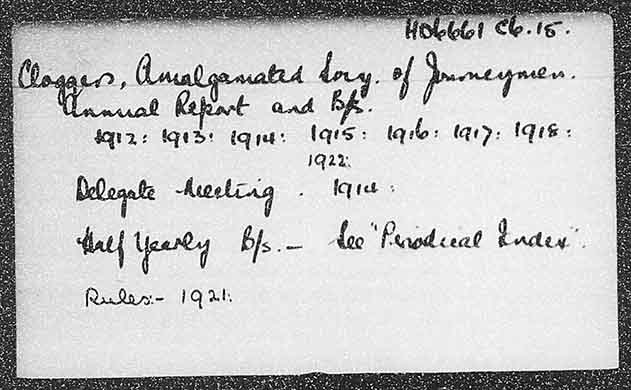 HD6661 C6.15.
Cloggers, Amalgamated Socy. of Journeymen.
Annual Report and B/s.
1912: 1913: 1914: 1915: 1916: 1917: 1918:
1922:
Delegate Meeting. 1914:
Half Yearly B/s. — See "Periodical Index".
Rules:- 1921: